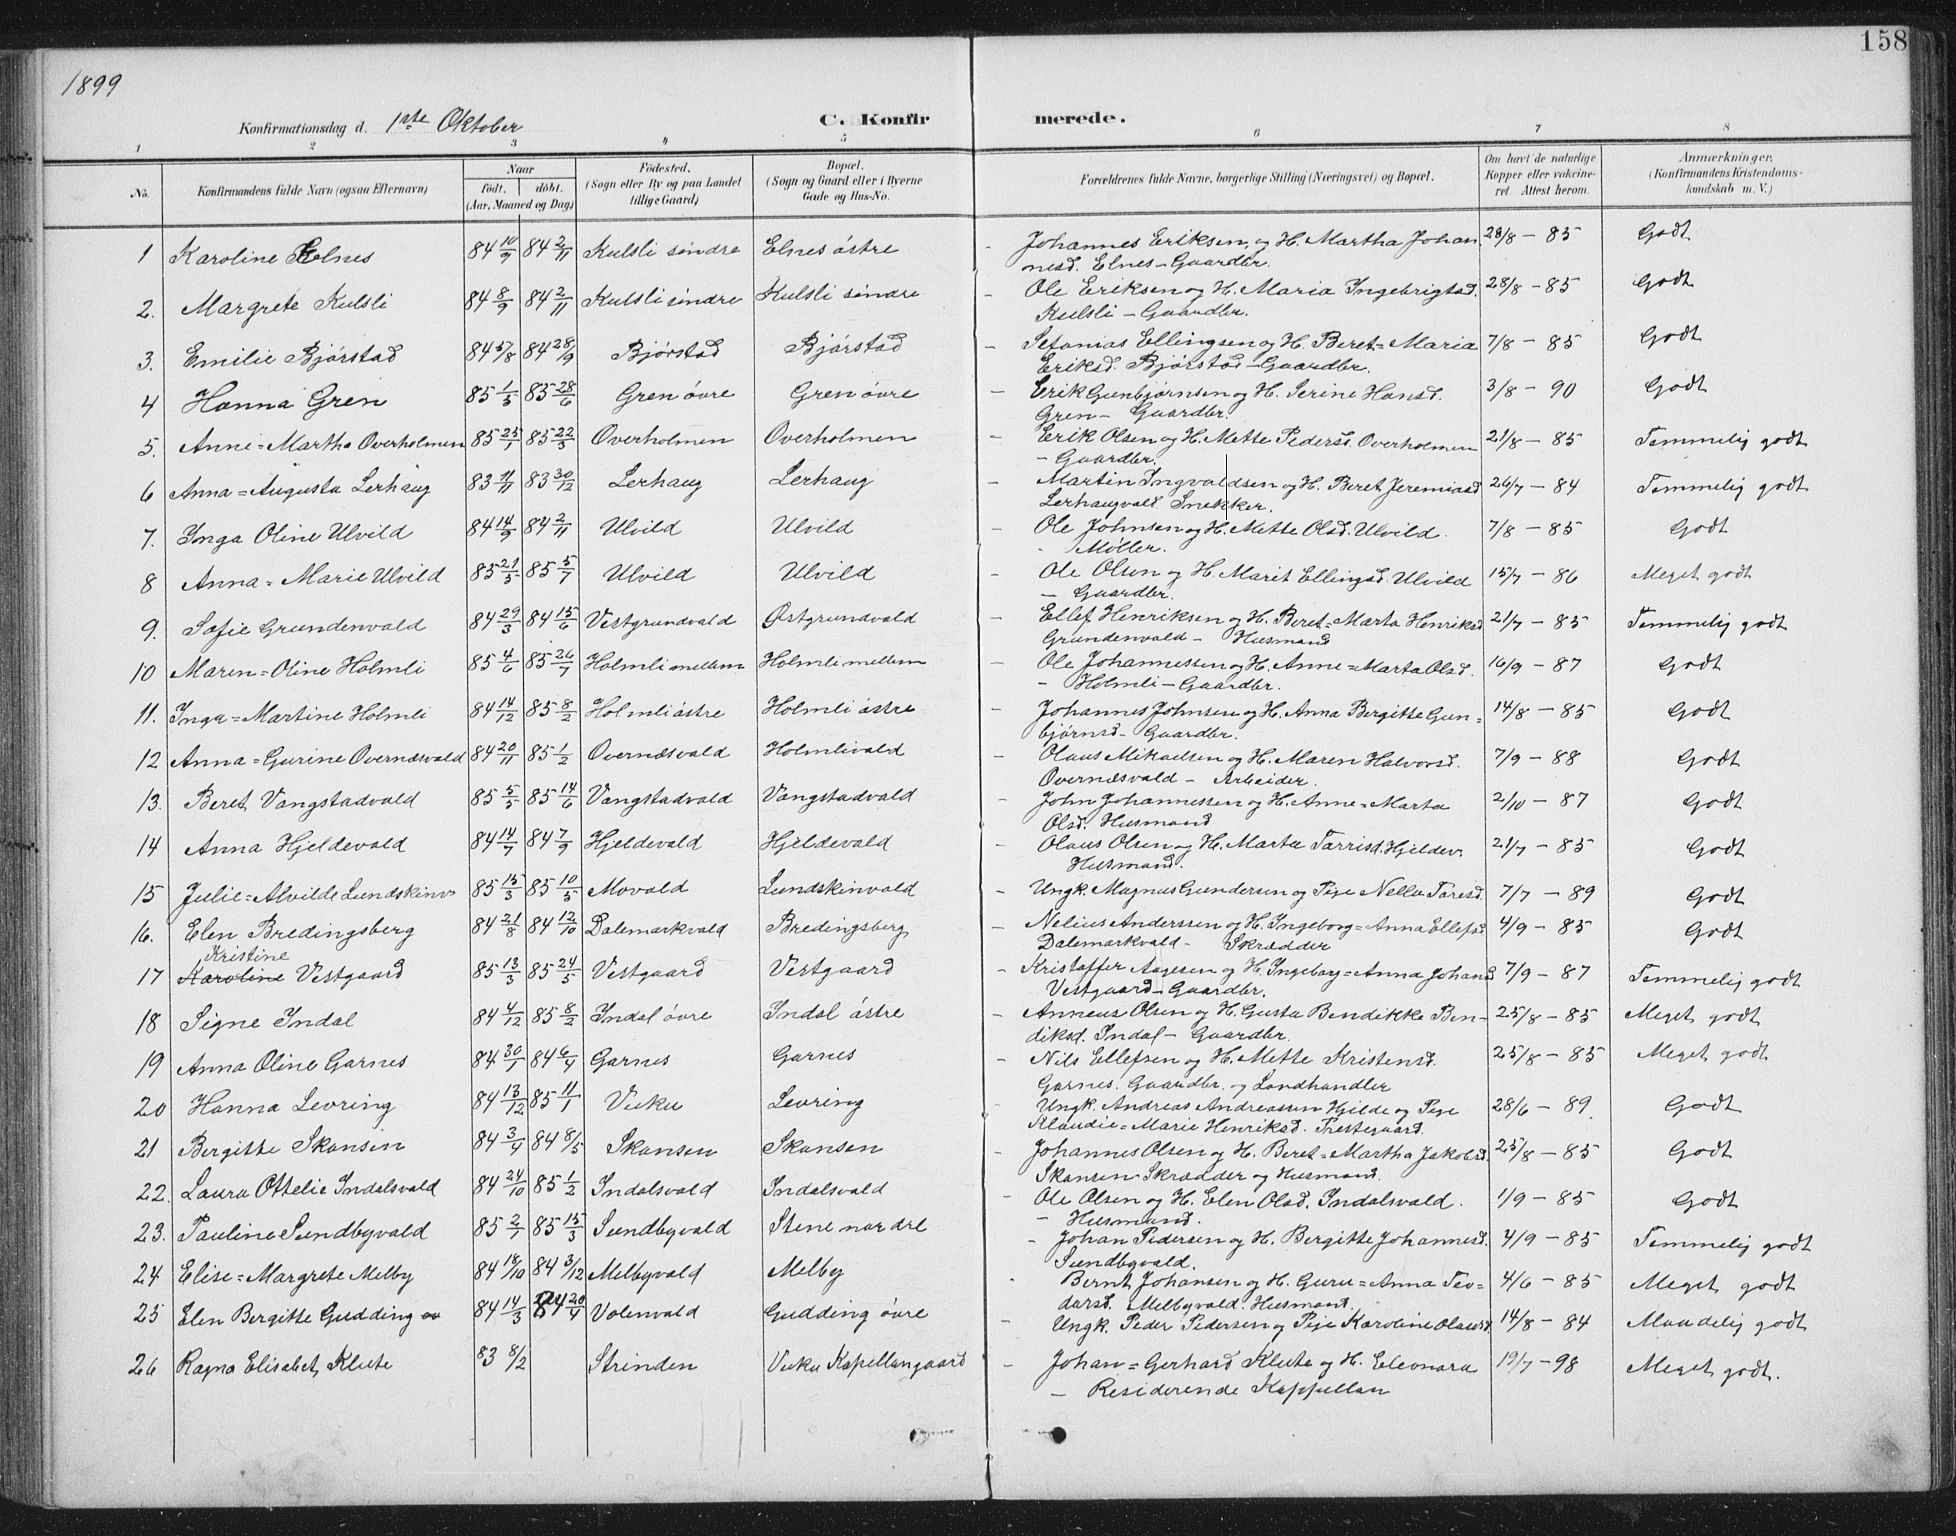 158
1899
Konfirmationsdag d. 1ste Oktober C. Konfirmerede.
1 2 3 4 5 6 7 8
No. Konfirmandens fulde Navn (ogsaa Efternavn) Naar födt. döbt. (Aar, Maaned og Dag) Födested. (Sogn eller By og paa Landet tillige Gaard) Bopæl. (Sogn og Gaard eller i Byerne Gade og Hus-No. Forældrenes fulde Navne, borgerlige Stilling (Næringsvei) og Bopæl. Om havt de naturlige Kopper eller vakcineret. Attest herom. Anmærkninger. (Konfirmandens Kristendomskundskab m. V.)
1 Karoline Elnes 84 10/9 84 2/11 Kulsli söndre Elnes östre - Johannes Eriksen og H. Martha Johan 28/8 - 85 Godt
nesd. Elnes - Gaardbr.
2. Margrete Kulsli 84 8/9 84 2/11 Kulsli söndre Kulsli söndre - Ole Eriksen og H. Maria Ingebrigtsd. 28/8 - 85 Godt
Kulsli - Gaardbr.
3. Emilie Bjørstad 84 5/8 84 28/9 Bjørstad Bjørstad - Sefanias Ellingsen og H. Beret=Maria 7/8 - 85 Godt
Eriksd. Bjørstad - Gaardbr.
4 Hanna Gren 85 1/5 85 28/6 Gren övre Gren övre - Erik Gunbjørnsen og H. Serine Hansd. 3/8 - 90 Godt
Gren - Gaardbr.
5. Anne=Martha Overholmen 85 25/1 85 22/3 Overholmen Overholmen - Erik Olsen og H. Mette Pedersd. Overholmen 21/8 - 85 Temmelig godt
- Gaardbr.
6 Anna=Augusta Lerhaug 83 11/11 83 30/12 Lerhaug Lerhaug - Martin Ingvaldsen og H. Beret Jeremiasd 26/7 - 84 Temmelig godt
Lerhaugvald Snekker.
7. Inga Oline Ulvild 84 14/9 84 2/11 Ulvild Ulvild - Ole Johnsen og H. Mette Olsd. Ulvild. 7/8 - 85 Godt
- Møller.
8 Anna=Marie Ulvild 85 21/5 85 5/7 Ulvild Ulvild - Ole Olsen og H. Marit Ellingsd. Ulvild 15/7 - 86 Meget godt
- Gaardbr.
9. Sofie Grundenvald 84 29/3 84 15/6 Vestgrundvald Østgrundvald - Ellef Henriksen og H. Beret=Marta Henriksd 21/7 - 85 Temmelig godt
Grundenvald - Husmand
10 Maren=Oline Holmli 85 4/6 85 26/7 Holmli mellem Holmli mellem - Ole Johannessen og H. Anne=Marta Olsd. 16/9 - 87 Godt
- Holmli - Gaardbr.
11. Inga=Martine Holmli 84 14/12 85 8/2 Holmli östre Holmli östre - Johannes Johnsen og H. Anna Bergitte Gun= 14/8 - 85 Godt
bjørnsd - Gaardbr.
12 Anna=Gurine Overnæsvald 84 20/11 85 1/2 Overnæsvald Holmlivald - Olaus Mikaelsen og H. Maren Halvorsd. 7/9 - 88 Godt
Overnæsvald - Arbeider.
13. Beret Vangstadvald 85 5/5 85 14/6 Vangstadvald Vangstadvald - John Johannessen og H. Anne=Marta 2/10 - 87 Godt
Olsd. Husmand
14 Anna Hjeldevald 84 14/7 84 7/9 Hjeldevald Hjeldevald - Olaus Olsen og H. Marta Tarrisd. Hjeldev. 21/7 - 85 Godt
Husmand.
15 Julie=Alvilde Lundskinv 85 15/3 85 10/5 Movald Lundskinvald - Ungk. Magnus Gundersen og Pige Nella Toresd. 7/7 - 89 Godt
16. Elen Bredingsberg 84 21/8 84 12/10 Dalemarkvald Bredingsberg - Nelius Anderssen og H. Ingeborg=Anna Ellefsd 4/9 - 85 Godt
Dalemarkvald - Skrædder
Kristine
17 Karoline Vestgaard 85 13/3 85 24/5 Vestgaard Vestgaard - Kristoffer Aagesen og H. Ingeborg=Anna Johansd 7/9 - 87 Temmelig godt
Vestgaard - Gaardbr.
18 Signe Indal 84 4/12 85 8/2 Indal övre Indal östre - Anneus Olsen og H. Gusta Bendikke Ben- 25/8 - 85 Meget godt
diksd. Indal - Gaardbr.
19 Anna Oline Garnes 84 30/1 84 6/4 Garnes Garnes - Nils Ellefsen og H. Mette Kristensd. 25/8 - 85 Meget godt
Garnes. Gaardbr. og Landhandler
20 Hanna Levring 84 13/12 85 11/1 Vuku Levring - Ungk. Andreas Andreassen Hjelde og Pige 28/6 - 89 Godt
Klaudie=Marie Henriksd. Prestegaard.
21 Bergitte Skansen 84 3/4 84 8/5 Skansen Skansen - Johannes Olsen og H. Beret=Martha Jakobsd 25/8 - 85 Godt
Skansen - Skrædder og Husmand.
22. Laura Ottelie Indalsvald 84 24/10 85 1/2 Indalsvald Indalsvald - Ole Olsen og H. Elen Olsd. Indalsvald. 1/9 - 85 Godt
- Husmand.
23. Pauline Sundbyvald 85 2/1 85 15/3 Sundbyvald Stene nordre - Johan Pedersen og H. Bergitte Johannesd. 4/9 - 85 Temmelig godt
Sundbyvald.
24 Elise=Margrete Melby 84 18/10 84 3/12 Melbyvald Melby - Bernt Johansen og H. Guru=Anna Teo= 4/6 - 85 Meget godt
dorsd. Melbyvald. Husmand.
25 Elen Bergitte Gudding 84 14/3 84 20/4 Volenvald Gudding övre - Ungk. Peder Pedersen og Pige Karoline Olausd 14/8 - 84 Maadelig godt
26 Ragna Elisabet Klute 83 8/2 Strinden Vuku Kapellangaard - Johan=Gerhard Klute og H. Eleonora 19/7 - 98 Meget godt.
- Residerende Kappellan